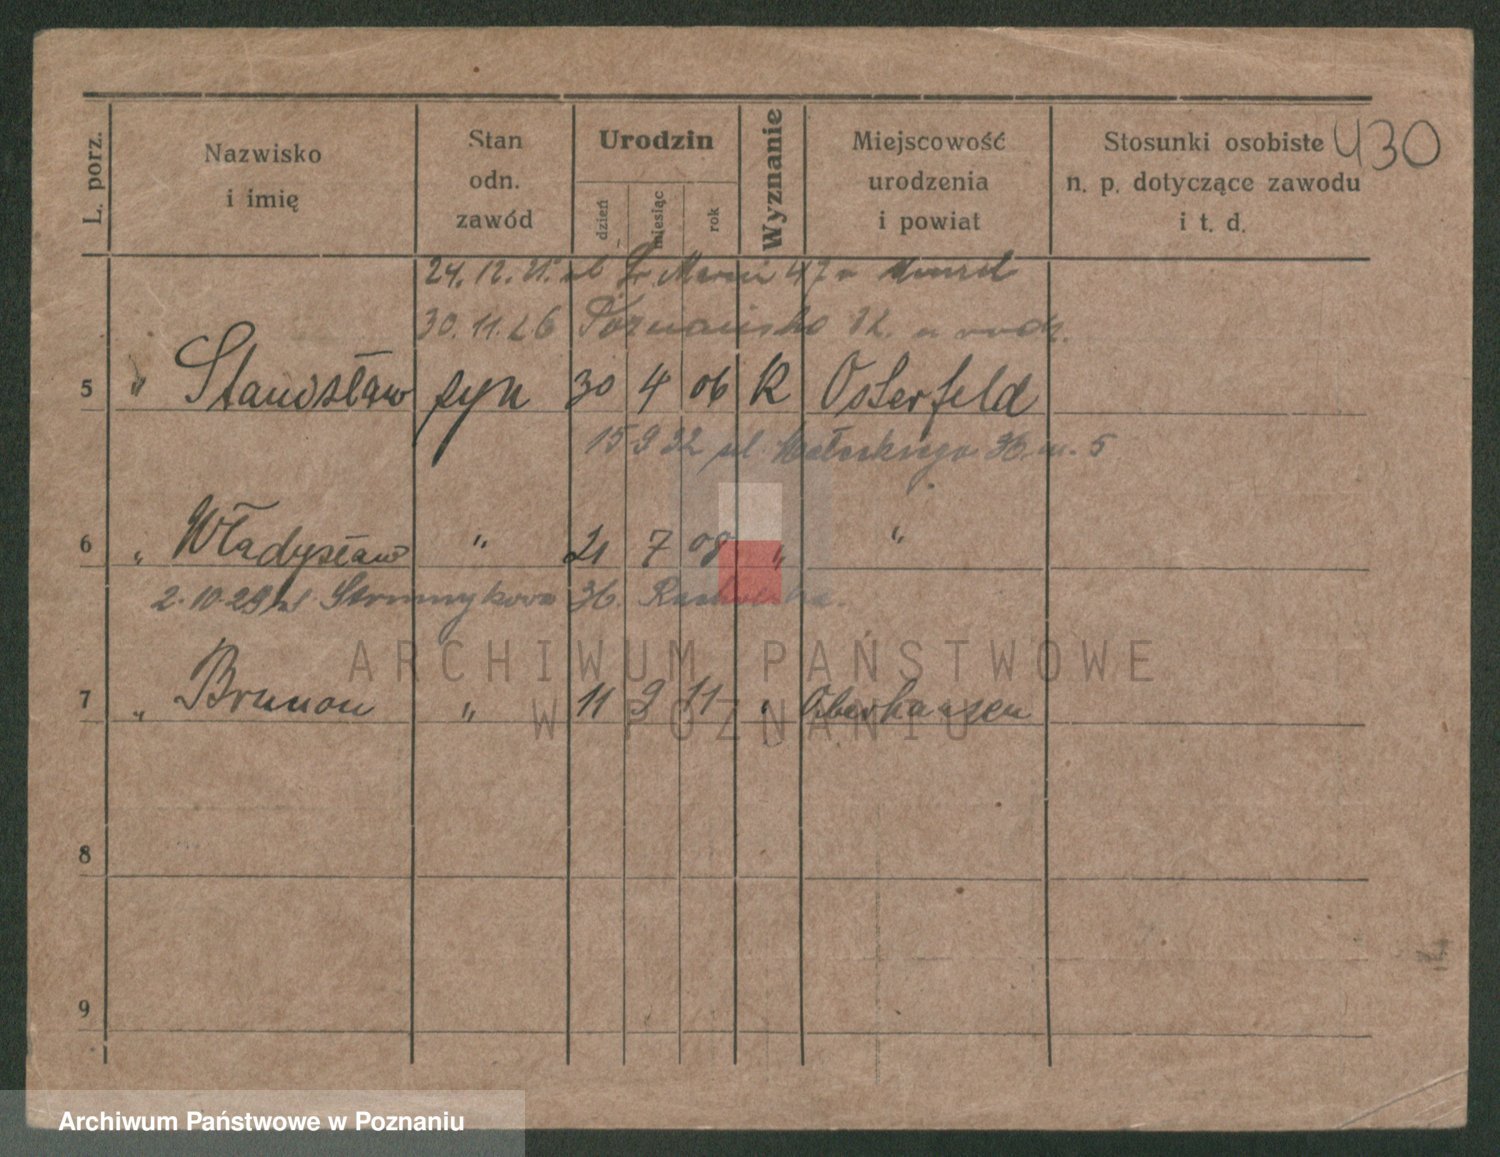 L. porz.
Nazwisko i imię
Stan odn. zawód
Urodzin
dzień
miesiąc
rok
Wyznanie
Miejscowość urodzenia i powiat
Stosunki osobiste n. p. dotyczące zawodu i t. d.
430
24.12. ul Św. Marcin 47
30.11.26 Poznańska 12.
5 " Stanisław syn 30 4 06 K Osterfeld
15 9 32 ul m. 5
6 " Władysław " 21 7 08 " "
2.10.29 ul Strumykowa 36.
7 " Brunon " 11 9 11 " Oberhausen
8
9
ARCHIWUM PAŃSTWOWE
W POZNANIU
Archiwum Państwowe w Poznaniu